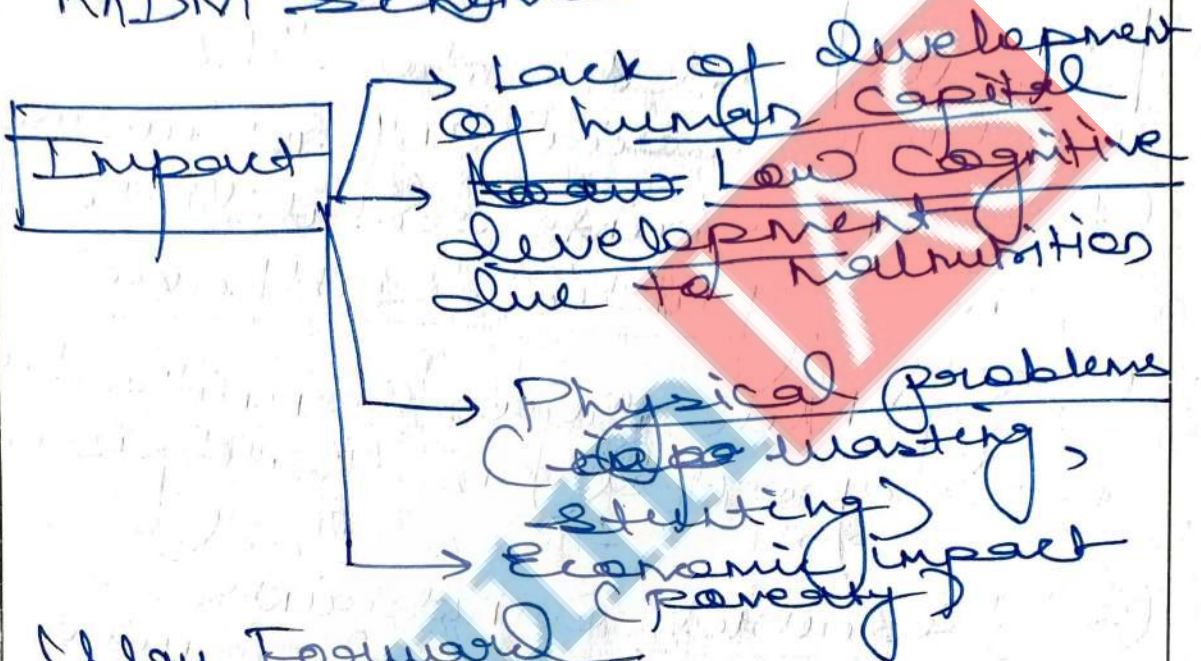 Impact
→ Lack of development
of human capital
→ Low Cognitive
development
due to malnutrition
→ Physical problems
( wasting,
stunting)
→ Economic impact
(poverty)
Way Forward
IAS